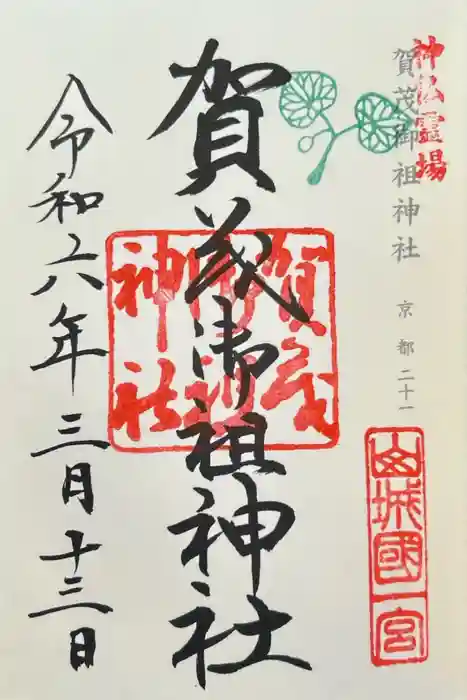 神仏霊場
賀茂御祖神社
京都二十一
山城國一宮
賀茂御祖神社
賀茂御祖神社
令和六年三月十三日